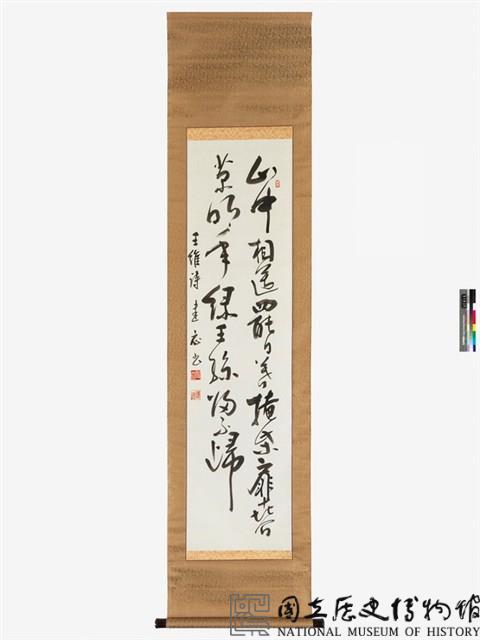 山中相送罷日暮掩柴扉春
草明年綠王孫歸不歸
王維詩 建 書
國立歷史博物館
NATIONAL MUSEUM OF HISTORY